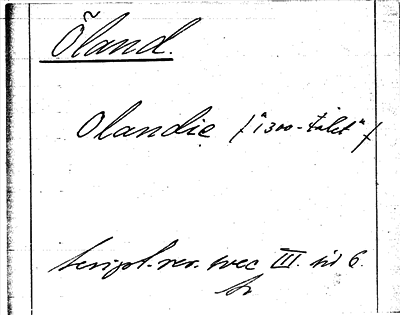 Öland.
Olandie /"1300-talet"/
Script. rer. svec III. sid 6.